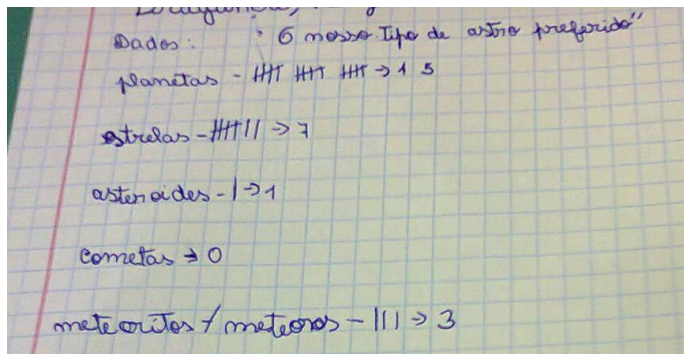 Dados: "O nosso tipo de astro preferido"
planetas - 卌 卌 卌 → 15
estrelas - 卌 || → 7
asteroides - | → 1
cometas → 0
meteoritos / meteoros - ||| → 3